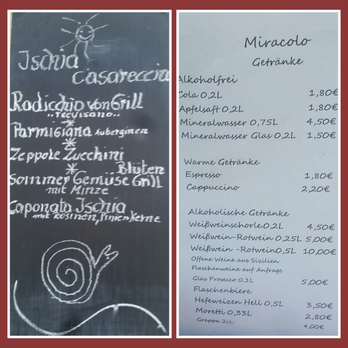 Ischia
Casareccia
Radicchio von Grill
"Trevisano"
Parmigiana Auberginen
Zeppole Zucchini
Blüten
Sommer Gemüse Grill
mit Minze
Caponata Ischia
mit Rosinen, Pinienkerne
Miracolo
Getränke
Alkoholfrei
Cola 0,2L 1,80€
Apfelsaft 0,2L 1,80€
Mineralwasser 0,75L 4,50€
Mineralwasser Glas 0,2L 1,50€
Warme Getränke
Espresso 1,80€
Cappuccino 2,20€
Alkoholische Getränke
Weißweinschorle 0,2L 4,50€
Weißwein-Rotwein 0,25L 5,00€
Weißwein -Rotwein 0,5L 10,00€
Offene Weine aus Sizilien
Flaschenweine auf Anfrage
Glas Prosecco 0,1L 5,00€
Flaschenbiere
Hefeweizen Hell 0,5L 3,50€
Moretti 0,33L 2,80€
Grappa 2cl 4,00€